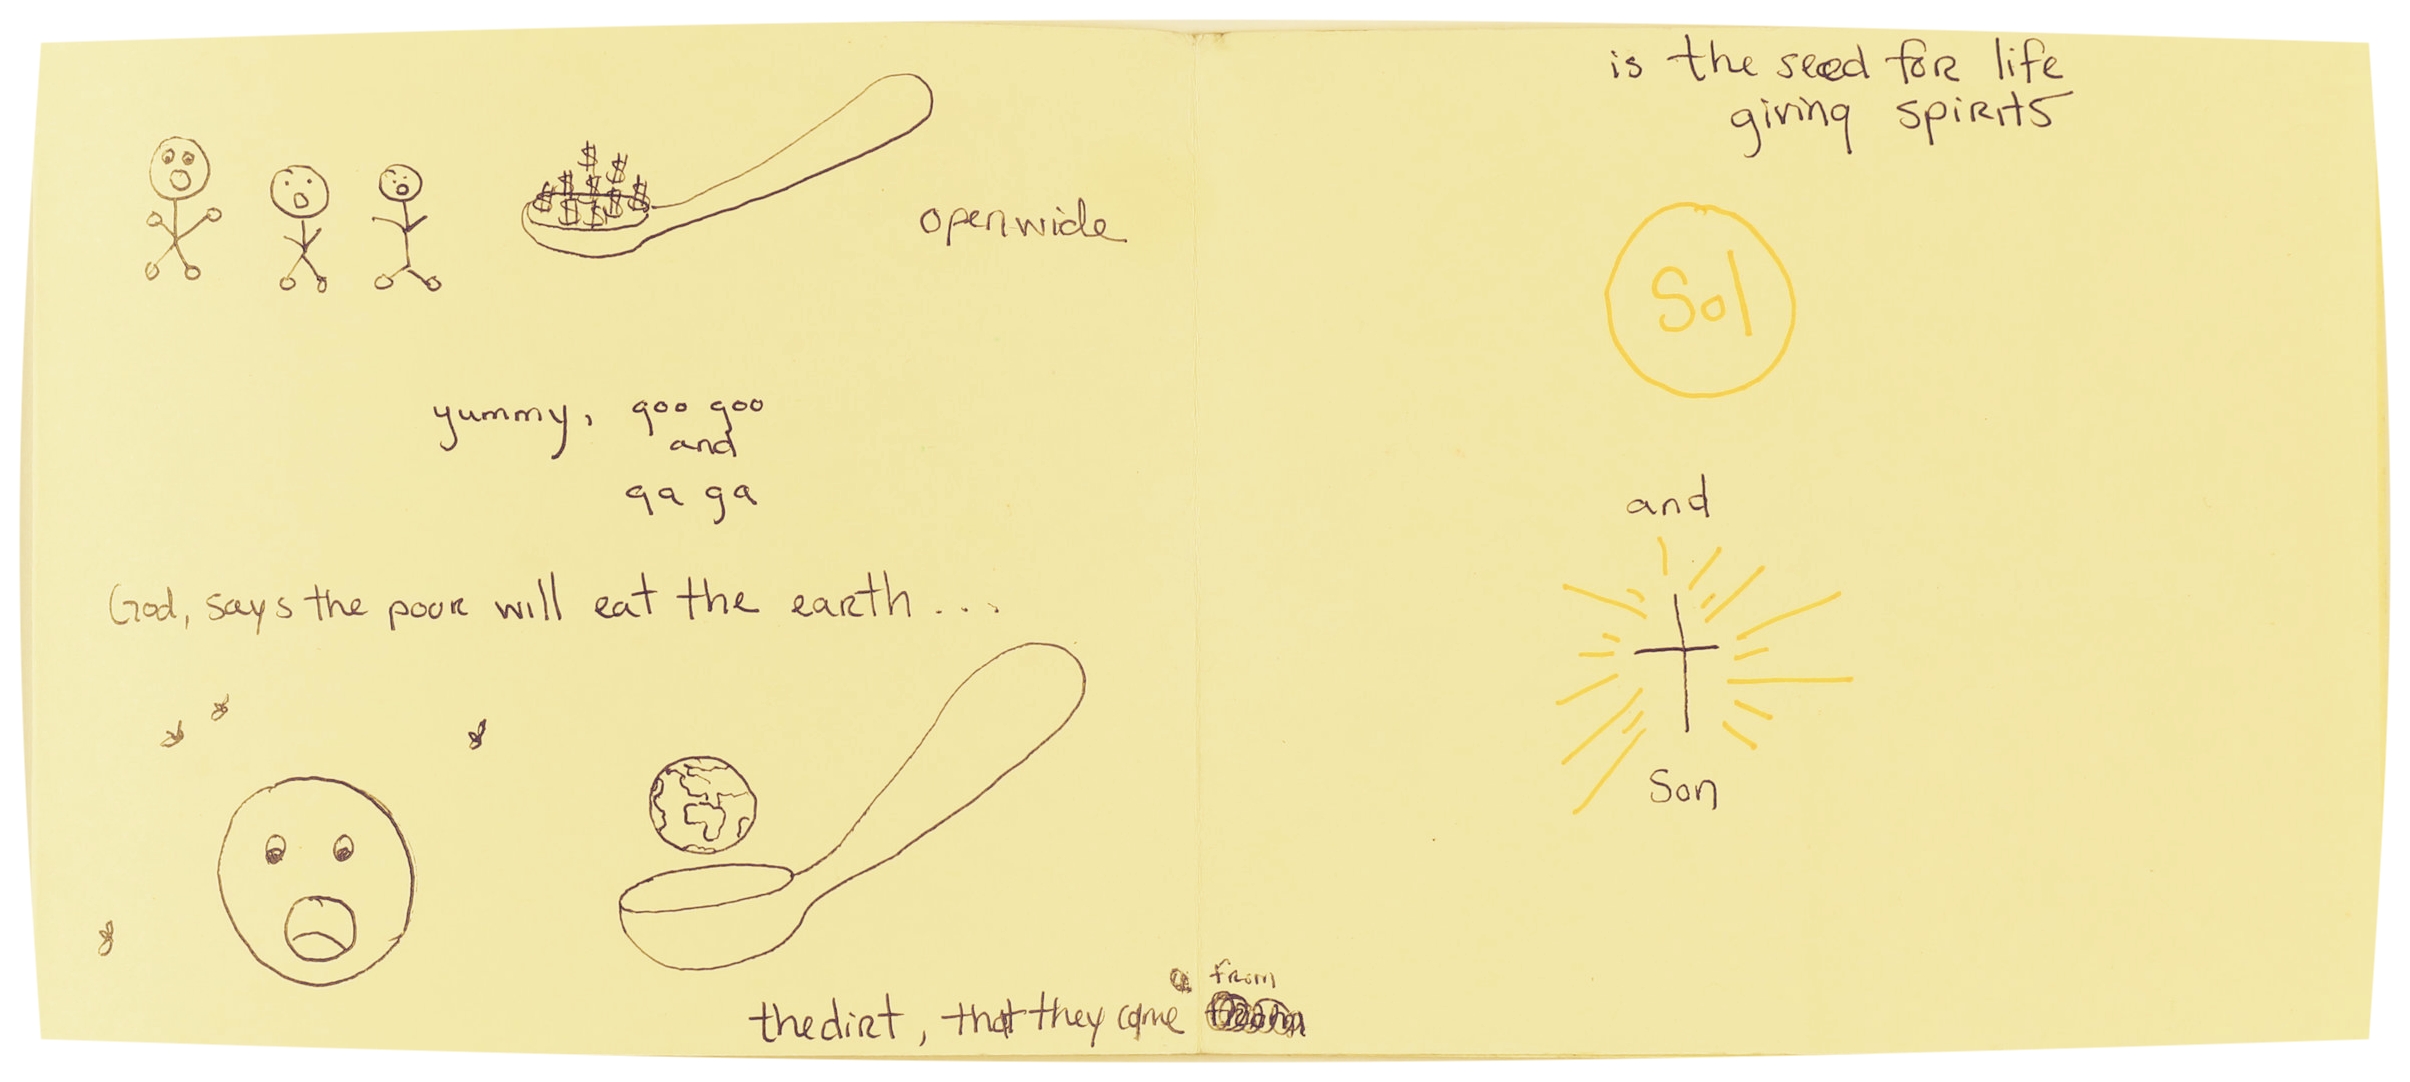 openwide
yummy, goo goo
and
ga ga
God, says the poor will eat the earth...
the dirt, that they came from
is the seed for life
giving spirits
Sol
and
Son